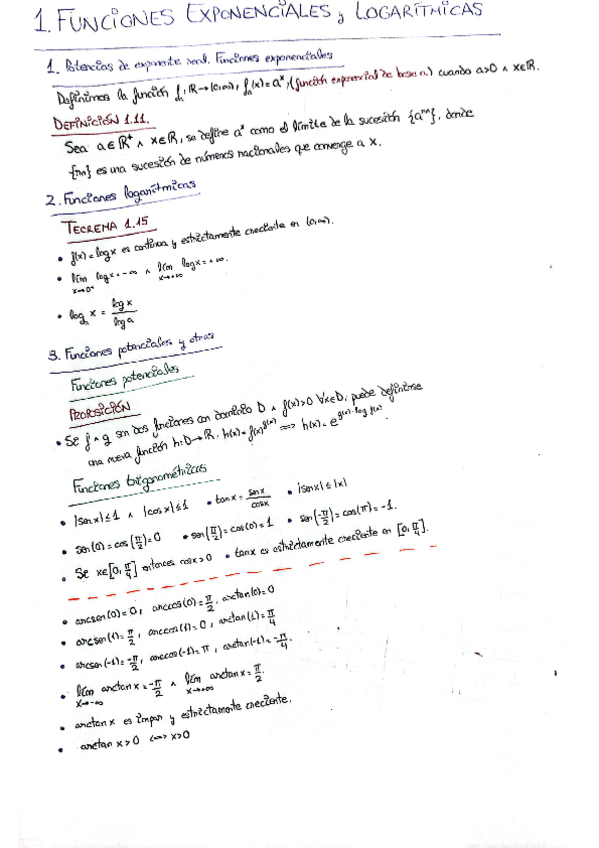 1. FUNCIONES EXPONENCIALES y LOGARÍTMICAS
1. Potencias de exponente real. Funciones exponenciales
Definimos la función fₐ: ℝ → (0,∞), fₐ(x) = aˣ, (función exponencial de base a) cuando a>0 ∧ x∈ℝ.
DEFINICIÓN 1.11.
Sea a∈ℝ⁺ ∧ x∈ℝ, se define aˣ como el límite de la sucesión {a^rn}, donde
{rn} es una sucesión de números racionales que converge a x.
2. Funciones logarítmicas
TEOREMA 1.15
• f(x) = log x es continua y estrictamente creciente en (0,∞).
• lím x→0⁺ log x = -∞ ∧ lím x→+∞ log x = +∞.
• logₐ x = log x / log a
3. Funciones potenciales y otras
Funciones potenciales
PROPOSICIÓN
• Si f ∧ g son dos funciones con dominio D ∧ f(x)>0 ∀x∈D, puede definirse
una nueva función h: D → ℝ, h(x) = f(x)^g(x) ⟹ h(x) = e^(g(x)·log f(x))
Funciones trigonométricas
• |sen x| ≤ 1 ∧ |cos x| ≤ 1 • tan x = sen x / cos x • |sen x| ≤ |x|
• sen(0) = cos(π/2) = 0 • sen(π/2) = cos(0) = 1 • sen(-π/2) = cos(π) = -1.
• Si x∈[0, π/4] entonces cos x > 0 • tan x es estrictamente creciente en [0, π/4].
• arcsen(0) = 0, arccos(0) = π/2, arctan(0) = 0
• arcsen(1) = π/2, arccos(1) = 0, arctan(1) = π/4
• arcsen(-1) = -π/2, arccos(-1) = π, arctan(-1) = -π/4.
• lím x→-∞ arctan x = -π/2 ∧ lím x→+∞ arctan x = π/2.
• arctan x es impar y estrictamente creciente.
• arctan x > 0 ⟺ x > 0